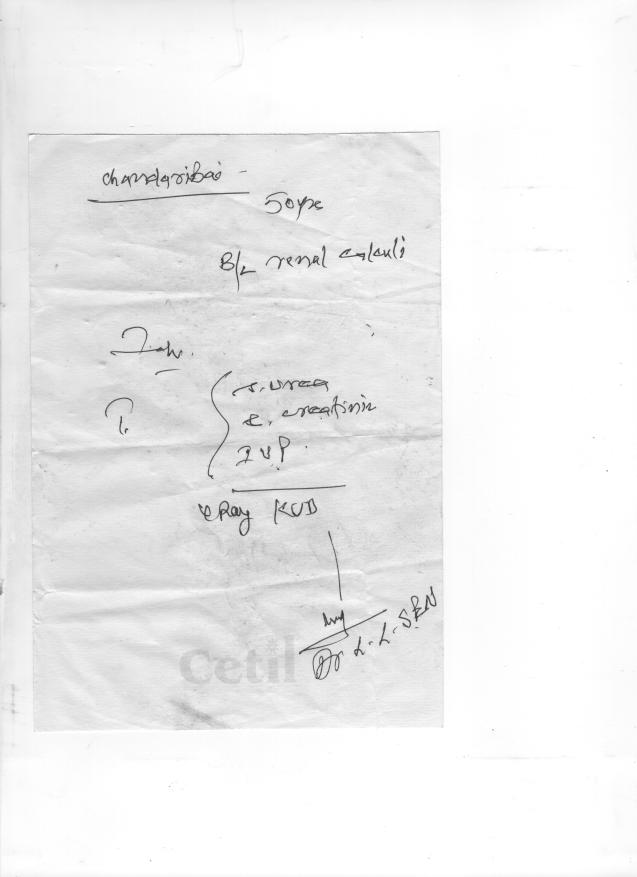 Chandaribai -
50yr
B/L renal calculi
S. urea
S. creatinin
IVP.
xRay KUB
Dr L. L. SEN
Cetil